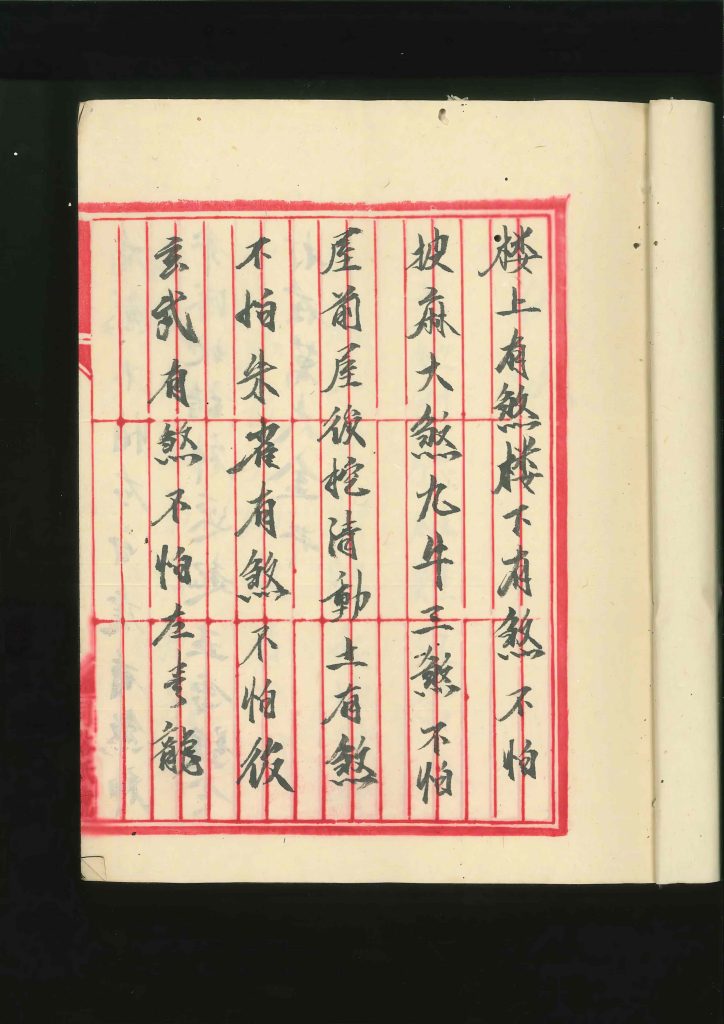 楼上有煞楼下有煞不怕
披麻大煞九牛三煞不怕
屋前屋後挖清動土有煞
不怕朱雀有煞不怕後
玄武有煞不怕左青龍